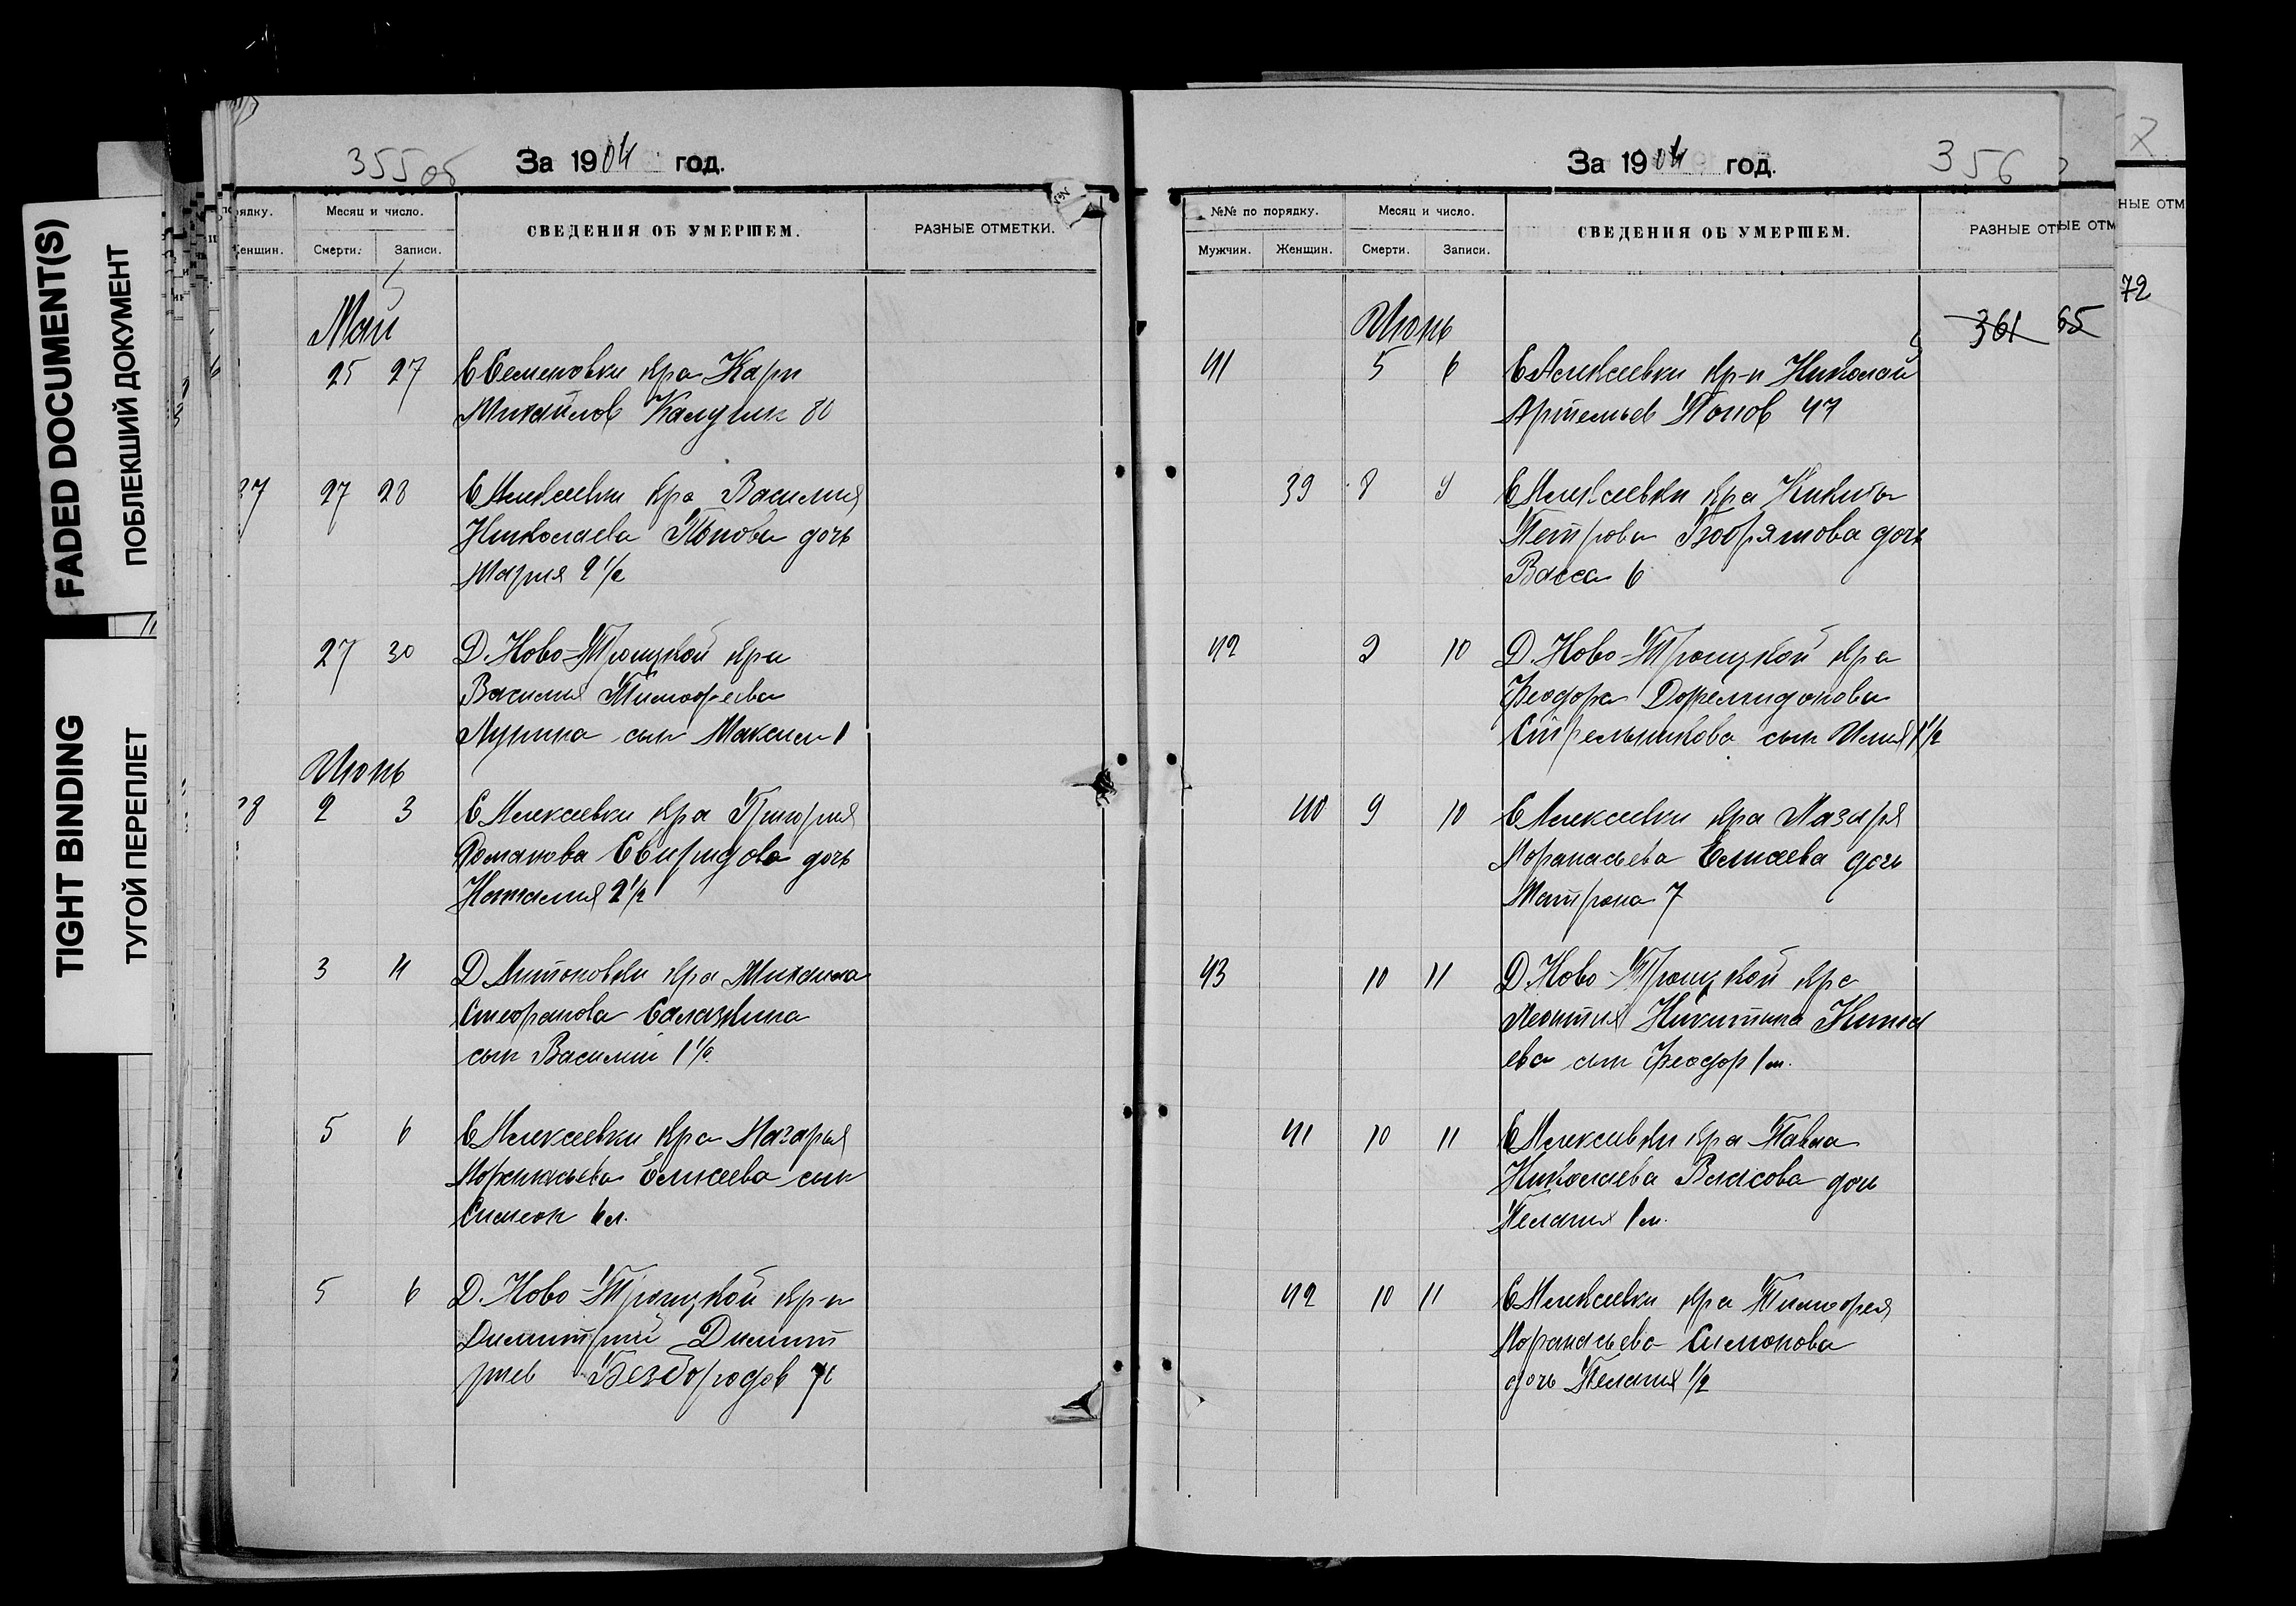 FADED DOCUMENT(S)
ПОБЛЕКШИЙ ДОКУМЕНТ
TIGHT BINDING
ТУГОЙ ПЕРЕПЛЕТ
355об
За 1904 год.
Месяц и число.
Смерти. Записи.
СВЕДЕНИЯ ОБ УМЕРШЕМ.
РАЗНЫЕ ОТМЕТКИ.
Май
25 27 С Семеновки кр-а Карп
Михайлов 80
27 28 С Алексеевки кр-а Василия
Николаева Попова дочь
Мария 2 1/2
27 30 Д. Ново-Троицкой кр-а
Василия Тимофеева
Лунина сын Максим 1
Июнь
2 3 С Алексеевки кр-а Григория
Романова Свиридова дочь
Наталия 2 1/2
3 4 Д Антоновки кр-а Михаила
Стефанова Салазкина
сын Василий 1 1/2
5 6 С Алексеевки кр-а Лазаря
Афанасьева Елисеева сын
Симеон 4 л.
5 6 Д. Ново-Троицкой кр-н
Димитрий Димит
риев Безбородов
За 1904 год.
356
№№ по порядку. Месяц и число.
Мужчин. Женщин. Смерти. Записи.
СВЕДЕНИЯ ОБ УМЕРШЕМ.
РАЗНЫЕ ОТ
ЫЕ ОТМ
НЫЕ ОТМ
72
361 65
Июнь
41 5 6 С Алексеевки кр-н Николай
Артемьев Попов 47
39 8 9 С Алексеевки кр-а Никиты
Петрова дочь
Васса 6
42 9 10 Д. Ново-Троицкой кр-а
Феодора
Стрельникова сын Илия 1 1/2
40 9 10 С Алексеевки кр-а Лазаря
Афанасьева Елисеева дочь
Матрона 7
43 10 11 Д. Ново-Троицкой кр-а
Леонтия Никитина
ева сын Феодор 1 м.
41 10 11 С Алексеевки кр-а Павла
Николаева Власова дочь
Пелагия 1 м.
42 10 11 С Алексеевки кр-а Тимофея
Афанасьева Симонова
дочь Пелагия 1/2